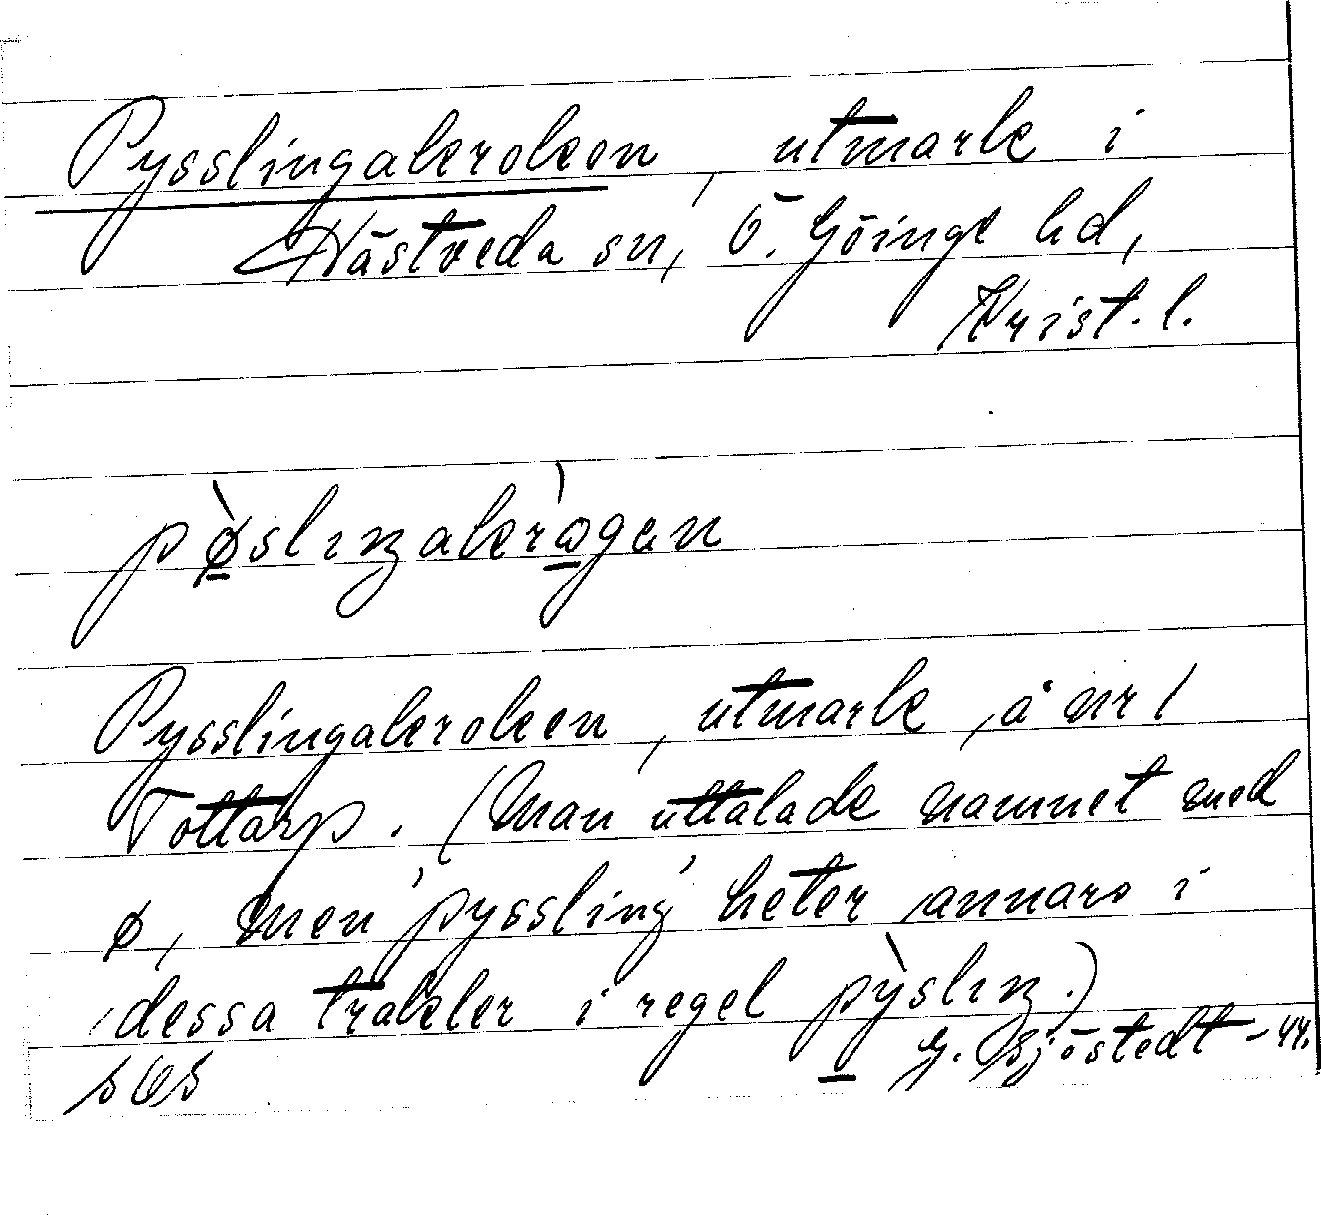 Pysslingakroken, utmark i
Hästveda sn, Ö. Göinge hd,
Krist. l.
pø̀slıŋakrògen
Pysslingakroken, utmark, å nr 1
Tottarp. (Man uttalade namnet med
ø, men 'pyssling' heter annars i
dessa trakter i regel pỳslıŋ.)
G. Sjöstedt -44.